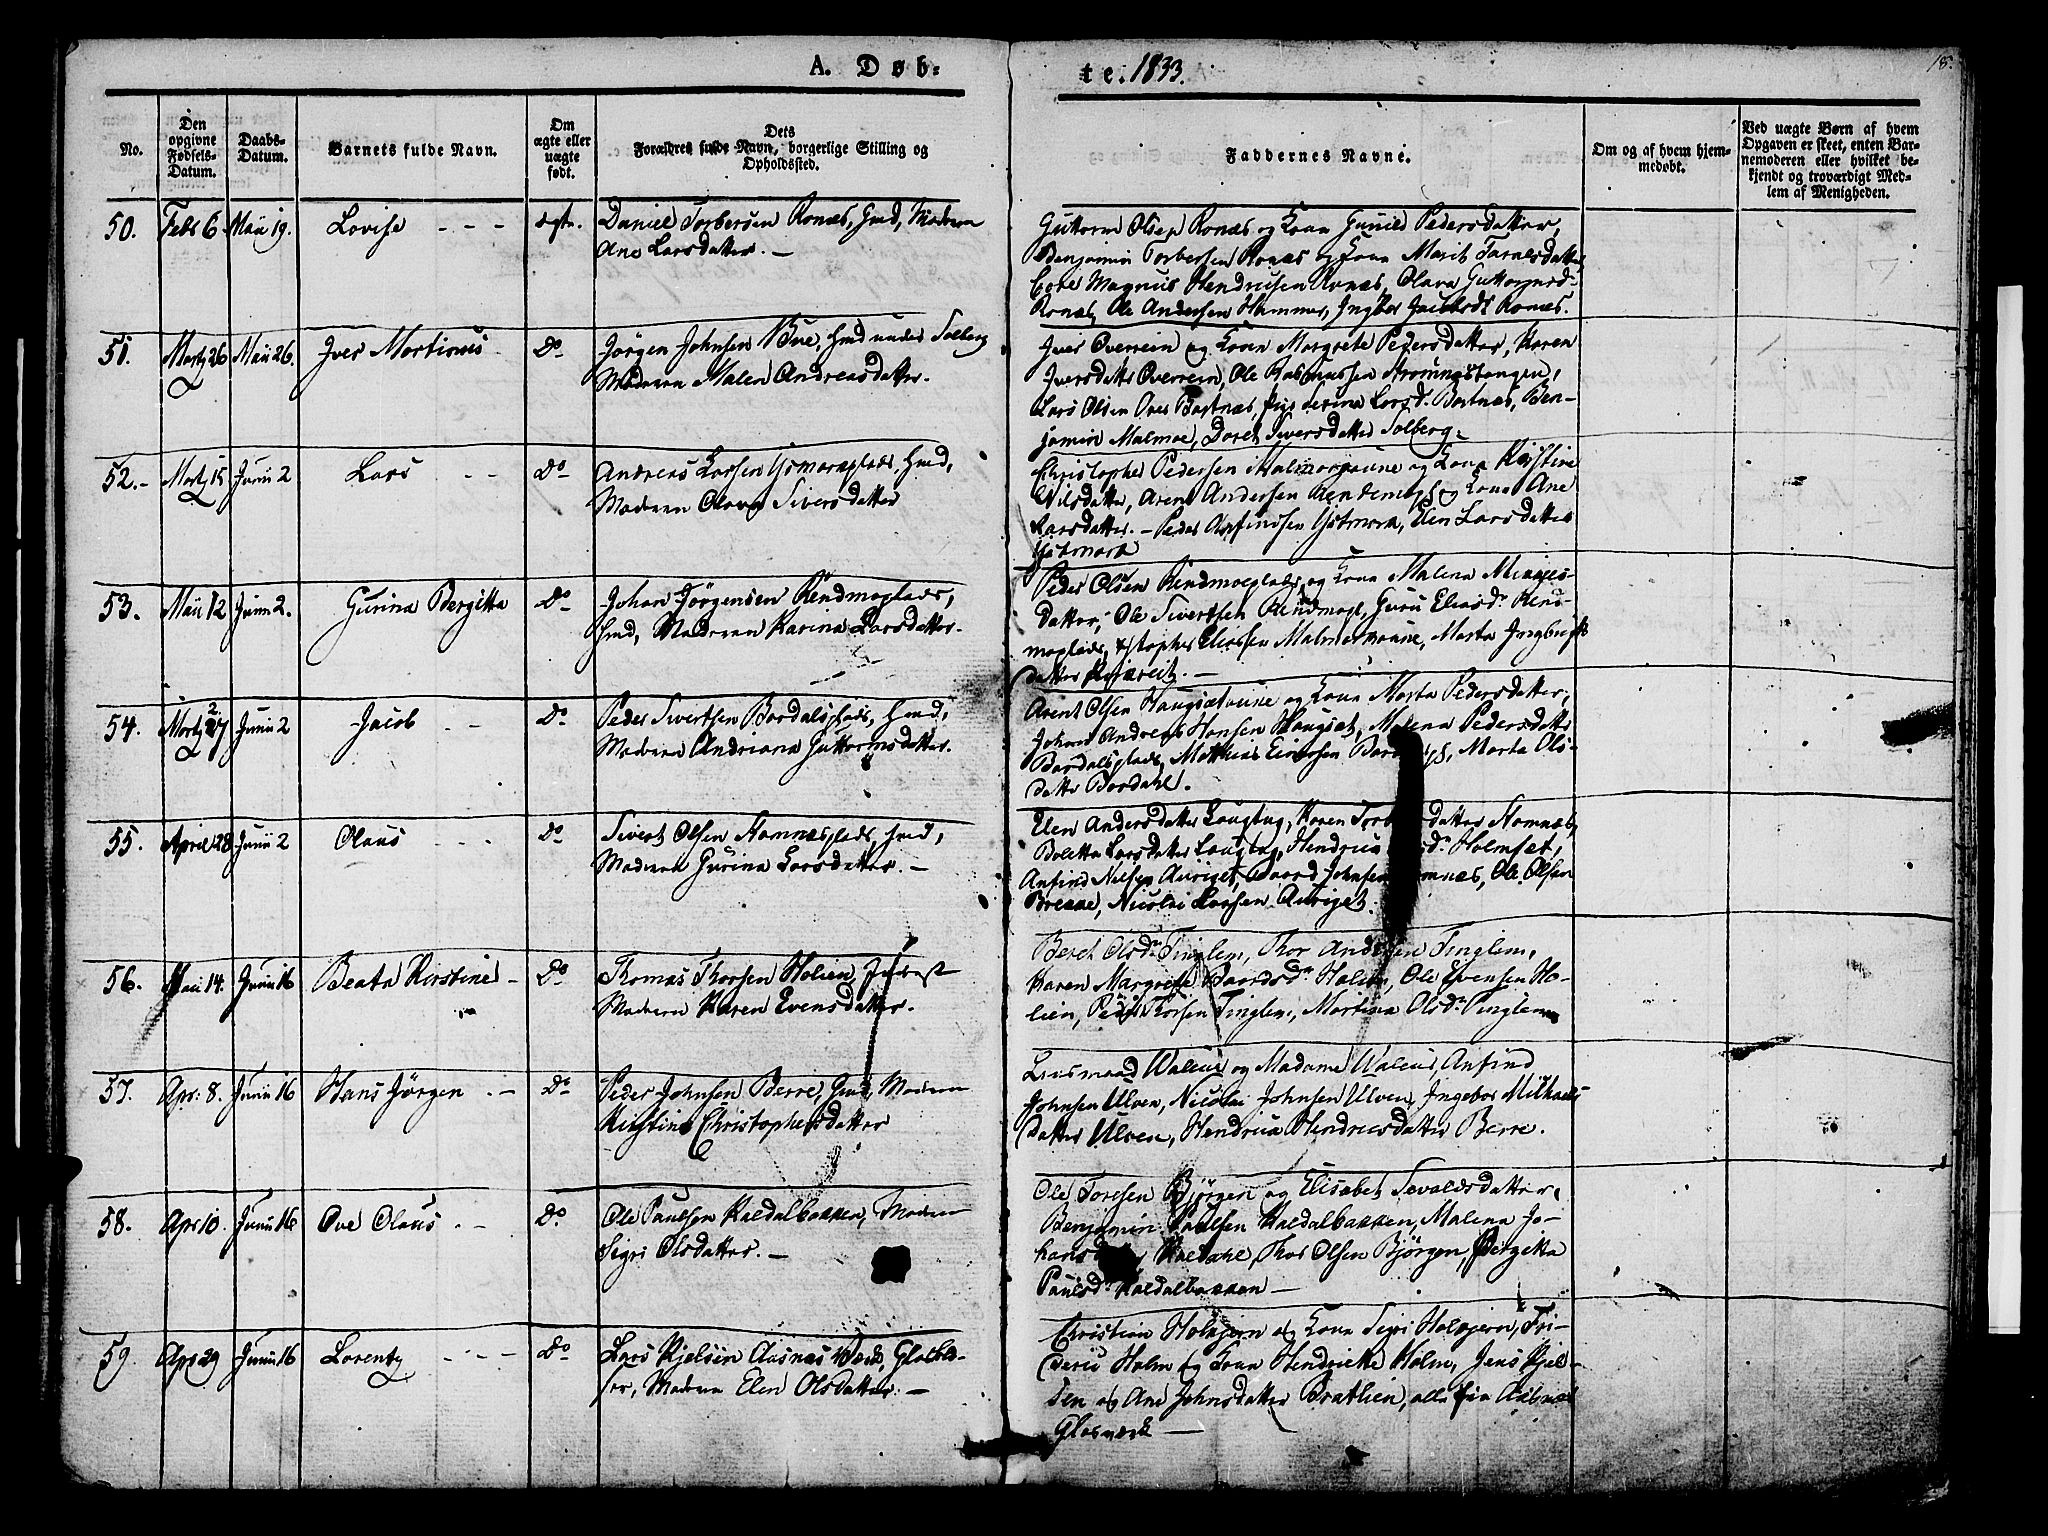 A. Døb-
te. 1833.
18.
No.
Den opgivne Fødsels-Datum.
Daabs-Datum.
Barnets fulde Navn.
Om ægte eller uægte født.
Dets
Forældres fulde Navn, borgerlige Stilling og
Opholdssted.
Faddernes Navne.
Om og af hvem hjem-
medøbt.
Ved uægte Børn af hvem
Opgaven er skeet, enten Bar-
nemoderen eller hvilket be-
kjendt og troværdigt Med-
lem af Menigheden.
50. Febr 6 Maii 19. Lovise
Daniel Torbersen Ronæs, Hmd, Moderen
Ane Larsdatter. —
Guttorm Olsen Ronæs og Kona Gunild Pedersdatter,
Benjamin Torbersen Ronæs og Kona Marit
Magnus Hendricsen Ronæs, Olava Guttormsd.
Ronæs, Ole Andersen Hammer, Ingebor Jacobsdr Ronæs.
51. Martz 26 Maii 26. Iver Mortinus Do
Jörgen Johnsen Bue, Hmd under Solberg
Moderen Malen Andreasdatter.
Iver Overrein og Kona Margrete Pedersdatter, Karen
Iversdatter Overrein, Ole Rasmussen Strömnestangen,
Lars Olsen Over Bartnæs, Larsd. Bartnæs, Ben-
jamin Malmoe, Doret Siversdatter Solberg.
52. Martz 15 Junii 2 Lars Do
Andreas Larsen Ystmarkplads, Hmd,
Moderen Olava Siversdatter
Christopher Pedersen Malmorjaune og Kona Kirstine
Nilsdatter, Arent Andersen og Kona Ane
Larsdatter. — Peder Arfindsen Ystmark, Elen Larsdatter
Ystmark
53. Maii 12 Junii 2. Gurina Bergitta Do
Johan Jörgensen Rendmoplads,
Hmd, Moderen Karina Larsdatter.
Peder Olsen Rendmoeplads og Kona Malena
datter, Ole Sivertsen Rendmoe, Guru Eliasdr Rend-
moplads, Eliassen Malmorjaune, Marta
datter
54. Martz 27 Junii 2 Jacob Do
Peder Sivertsen Bardalsplads, Hmd,
Moderen Andriana Guttormsdatter.
Arent Olsen Haugsetaune og Kona Marta Pedersdatter,
Johan Andreas Hansen Haugset, Malena Pedersdatter
Bardalsplads, Matthias Marta Ols-
datter Bardahl.
55. April 28 Junii 2 Olaus Do
Sivert Olsen Hamnesplads, Hmd,
Moderen Gurina Larsdatter. —
Elen Andersdatter Langtug, Karen datter Hamnes,
Boletta Larsdatter Langtug, Holmset,
Anfind Nilsen Aurigset, Baard Johnsen Hamnes, Ole Olsen
Brekke, Nicolai Larsen Aurigset.
56. Maii 14. Junii 16 Beata Kirstine Do
Thomas Thorsen Holien,
Moderen Karen Evensdatter.
Beret Olsdr Tinglem, Thor Andersen Tinglem,
Karen Margrete Baardsdr Holien, Ole Evensen Ho-
lien, Peder Thorsen Tinglem, Martina Olsdr Tinglem
57. Apr: 8. Junii 16 Hans Jörgen Do
Peder Johnsen Berre, Hmd, Moderen
Kirstine Christophersdatter
Lensmand Walens og Madame Walens, Anfind
Johnsen Ulven, Nicolai Johnsen Ulven, Ingebor Mikhaels
datter Ulven, Hendrica Hendricsdatter Berre.
58. Apr 10. Junii 16 Ove Olaus Do
Ole Paulsen Kaldalbakken, Moderen
Sigri Olsdatter. —
Ole Toresen Bjørgen og Elisabet Sevaldsdatter,
Benjamin Paulsen Kaldalbakken, Malena Jo-
hansd Kaldahl, Thor Olsen Bjørgen, Bergitta
Paulsd Kaldalbakken —
59. Apr 29 Junii 16 Lorentz Do
Lars Kjelsen Aasnæs Værk, Glasblæ-
ser, Moderen Elen Olsdatter. —
Christian Holkjern og Kona Sigri Holkjern, Fri-
deric Holm og Kona Hendrikke Holm, Jens Kjel-
sen og Ane Johnsdatter Bratlien, alle fra Aasnæs
Glasværk —